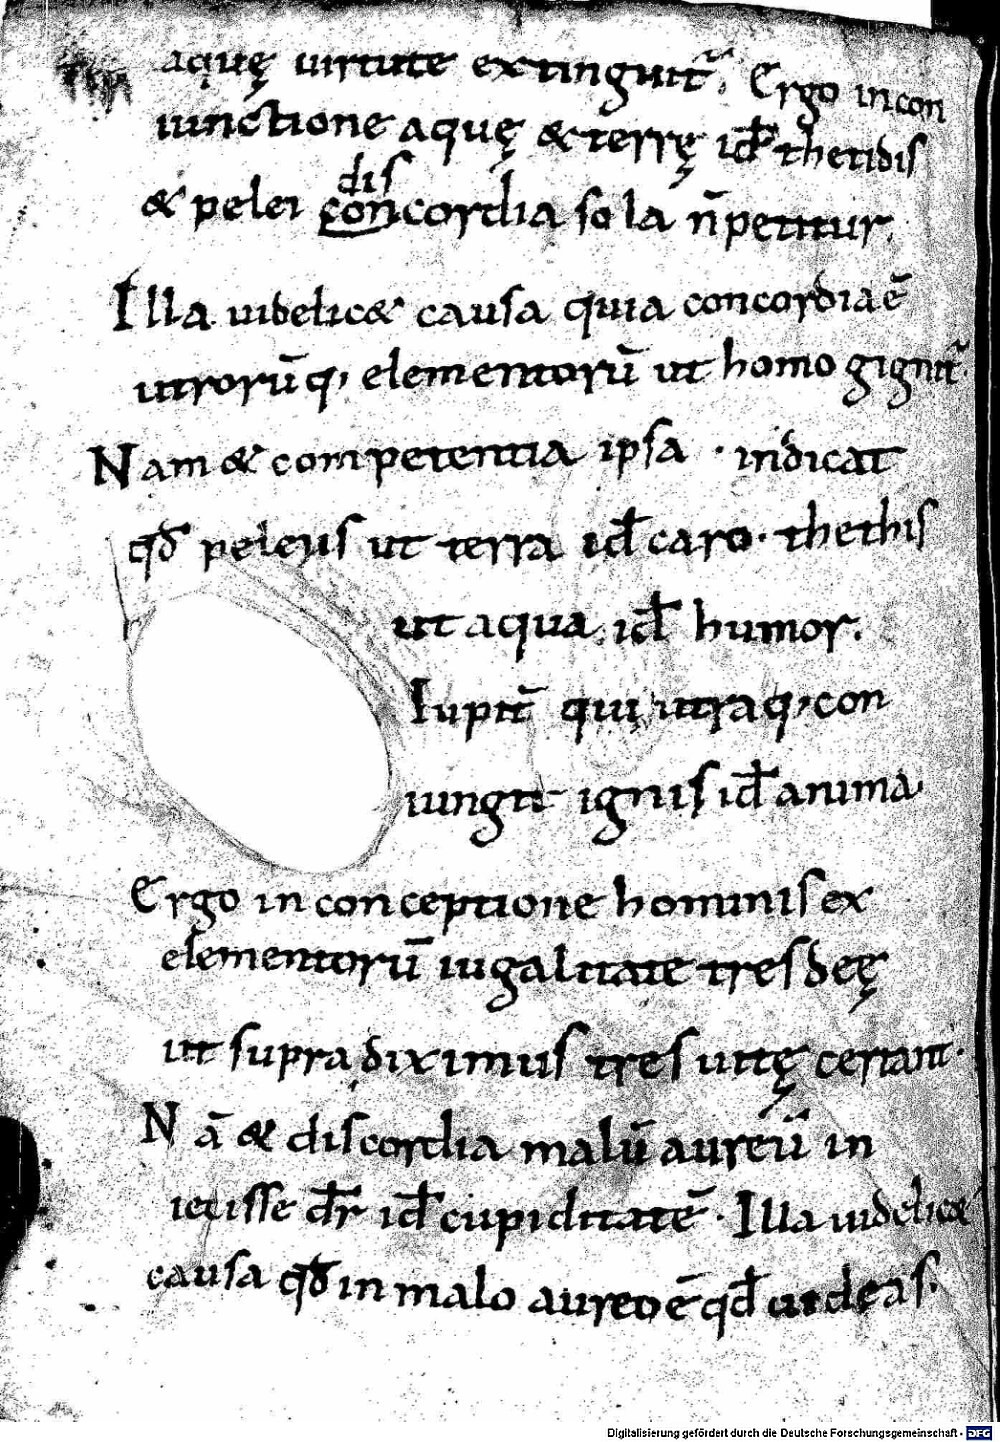 aquę uirtute extinguit᷑. Ergo incon
iunctione aquę & terrę id̄ thetidis
dis
& pelei concordia sola n̄ petitur.
Illa uidelic& causa quia concordia ē
utrorūq, elementorū ut homo gignit᷑.
Nam & competentia ipsa · indicat
qđ peleus ut terra id̄ caro · thethis
ut aqua id̄ humor.
Iupit̄ qui utraq, con
iungit ignis id̄ anima
Ergo in conceptione hominis ex
elementorū iugalitate tres deę
ut supra diximus tres uitę certant.
Nā & discordia malū aureū in
iecisse dr̄ id̄ cupiditatē. Illa uidelic&
causa qđ in malo aureo ē qđ uideas.
Digitalisierung gefördert durch die Deutsche Forschungsgemeinschaft - DFG